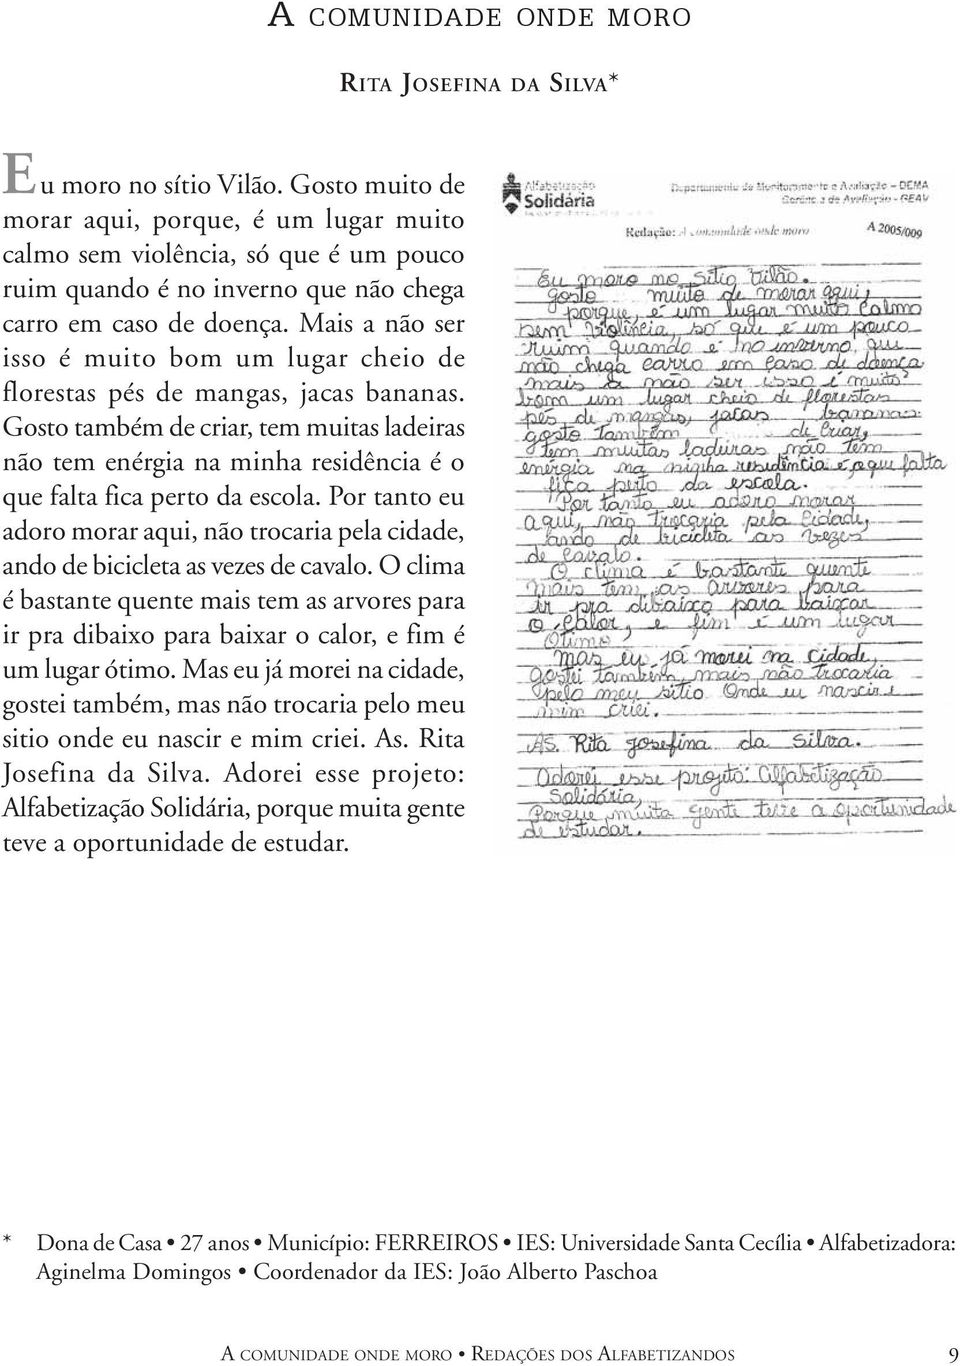 A COMUNIDADE ONDE MORO
RITA JOSEFINA DA SILVA*
Eu moro no sítio Vilão. Gosto muito de
morar aqui, porque, é um lugar muito
calmo sem violência, só que é um pouco
ruim quando é no inverno que não chega
carro em caso de doença. Mais a não ser
isso é muito bom um lugar cheio de
florestas pés de mangas, jacas bananas.
Gosto também de criar, tem muitas ladeiras
não tem enérgia na minha residência é o
que falta fica perto da escola. Por tanto eu
adoro morar aqui, não trocaria pela cidade,
ando de bicicleta as vezes de cavalo. O clima
é bastante quente mais tem as arvores para
ir pra dibaixo para baixar o calor, e fim é
um lugar ótimo. Mas eu já morei na cidade,
gostei também, mas não trocaria pelo meu
sitio onde eu nascir e mim criei. As. Rita
Josefina da Silva. Adorei esse projeto:
Alfabetização Solidária, porque muita gente
teve a oportunidade de estudar.
Alfabetização
Solidária
Departamento de Monitoramento e Avaliação – DEMA
de Avaliação - GEAV
Redação: A comunidade onde moro
A 2005/009
Eu moro no Sítio Vilão.
Gosto muito de morar aqui,
porque, é um lugar muito Calmo
sem violência, só que é um pouco
ruim quando é no inverno, que
não chega carro em caso de doença
mais a não ser isso é muito
bom um lugar cheio de florestas
pés de mangas, jacas bananas
gosto também de criar,
tem muitas ladeiras não tem
enérgia na minha residência é o que falta
fica perto da escola.
Por tanto eu adoro morar
aqui, não trocaria pela Cidade,
ando de bicicleta as vezes
de Cavalo.
O clima é bastante quente
mais tem as arvores para
ir pra dibaixo para baixar
o Calor, e fim é um lugar
Otimo.
Mas eu já morei na Cidade,
Gostei também, mais não trocaria
pelo meu sitio Onde eu nascir e
mim criei.
AS. Rita Josefina da Silva.
Adorei esse projeto: Alfabetização
Solidária,
Porque muita gente teve a oportunidade
de estudar.
* Dona de Casa • 27 anos • Município: FERREIROS • IES: Universidade Santa Cecília • Alfabetizadora:
Aginelma Domingos • Coordenador da IES: João Alberto Paschoa
A COMUNIDADE ONDE MORO • REDAÇÕES DOS ALFABETIZANDOS 9